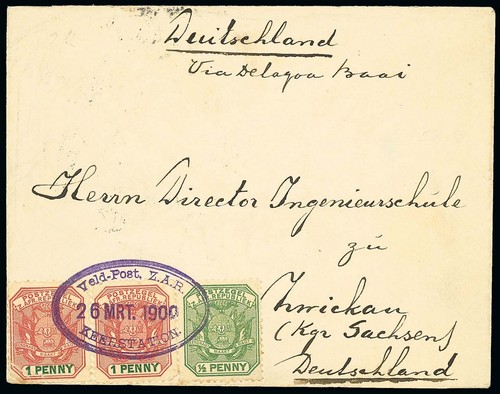 Deutschland
Via Delagoa Baai
Herrn Director Ingenieurschule
zu
Zwickau
(Kgr Sachsen)
Deutschland
Veld-Post, Z.A.R.
26 MRT. 1900
STATION.
POSTZEGEL
Z. AFR. REPUBLIEK
1 PENNY
POSTZEGEL
Z. AFR. REPUBLIEK
1 PENNY
POSTZEGEL
Z. AFR. REPUBLIEK
½ PENNY